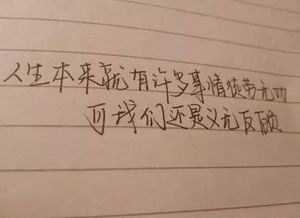 人生本来就有许多事情徒劳无功
可我们还是义无反顾